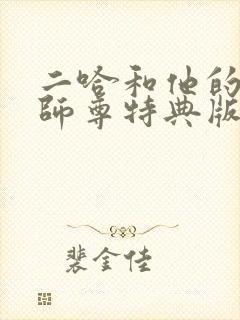 二哈和他的
師尊特典版
裴金佳